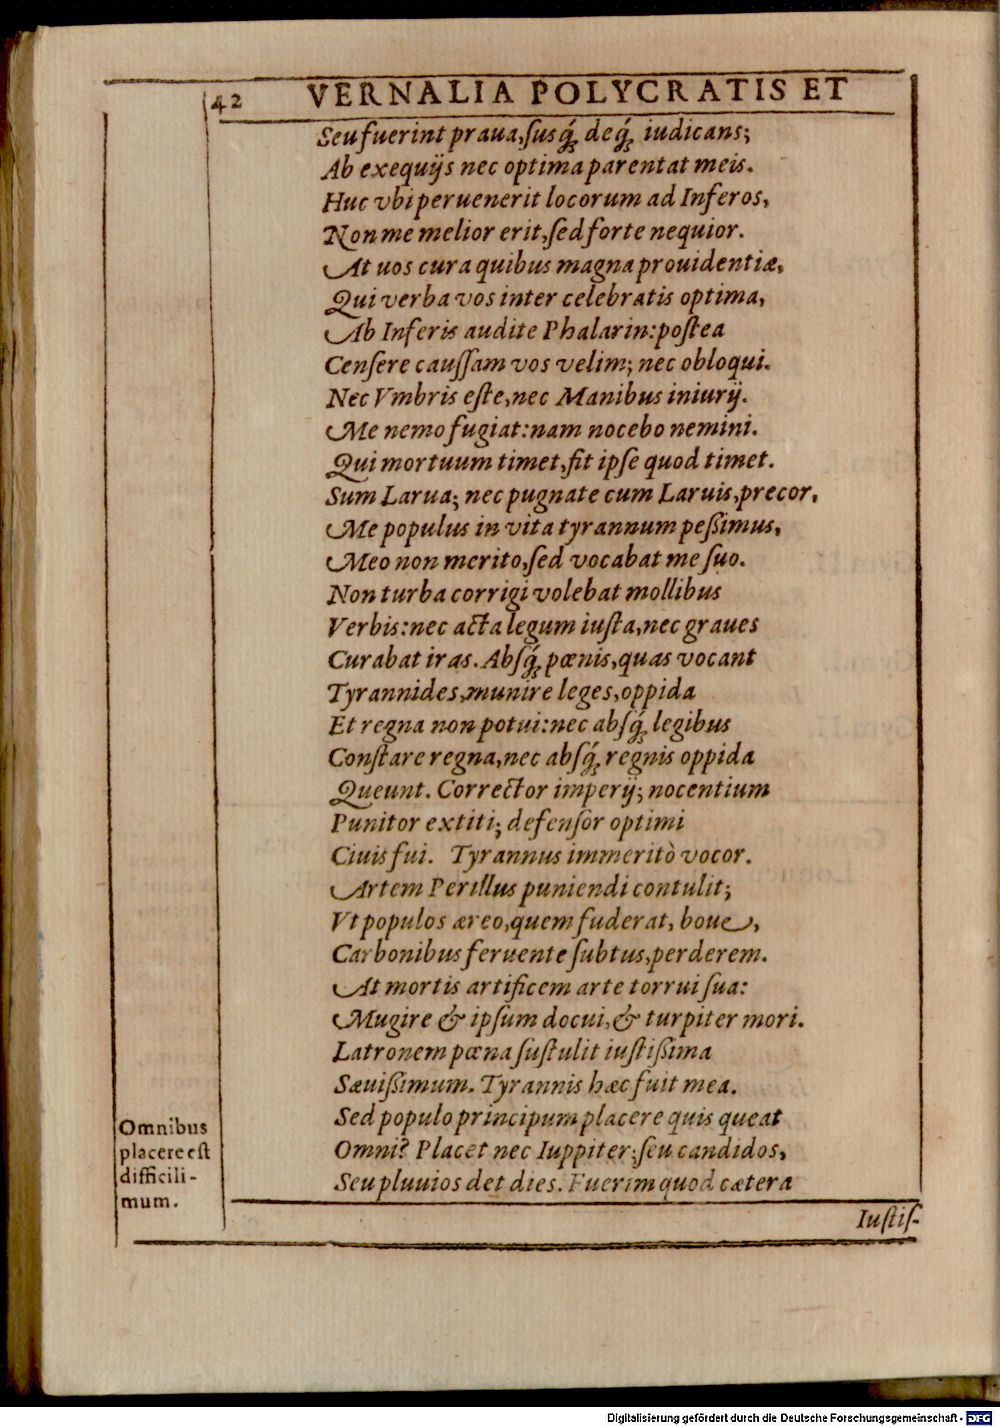 42 VERNALIA POLYCRATIS ET
Seu fuerint praua, susq́; deq́; iudicans;
Ab exequijs nec optima parentat meis.
Huc vbi peruenerit locorum ad Inferos,
Non me melior erit, sed forte nequior.
At uos cura quibus magna prouidentiæ,
Qui verba vos inter celebratis optima,
Ab Inferis audite Phalarin: postea
Censere caussam vos velim; nec obloqui.
Nec Vmbris este, nec Manibus iniurij.
Me nemo fugiat: nam nocebo nemini.
Qui mortuum timet, fit ipse quod timet.
Sum Larua; nec pugnate cum Laruis, precor,
Me populus in vita tyrannum peßimus,
Meo non merito, sed vocabat me suo.
Non turba corrigi volebat mollibus
Verbis: nec acta legum iusta, nec graues
Curabat iras. Absq́; pœnis, quas vocant
Tyrannides, munire leges, oppida
Et regna non potui: nec absq́; legibus
Constare regna, nec absq́; regnis oppida
Queunt. Corrector imperij; nocentium
Punitor extiti; defensor optimi
Ciuis fui. Tyrannus immeritò vocor.
Artem Perillus puniendi contulit;
Vt populos æreo, quem fuderat, boue,
Carbonibus feruente subtus, perderem.
At mortis artificem arte torrui sua:
Mugire & ipsum docui, & turpiter mori.
Latronem pœna sustulit iustißima
Sæuißimum. Tyrannis hæc fuit mea.
Sed populo principum placere quis queat
Omni? Placet nec Iuppiter; seu candidos,
Seu pluuios det dies. Fuerim quod cætera
Omnibus
placere est
difficili-
mum.
Iustis-
Digitalisierung gefördert durch die Deutsche Forschungsgemeinschaft - DFG